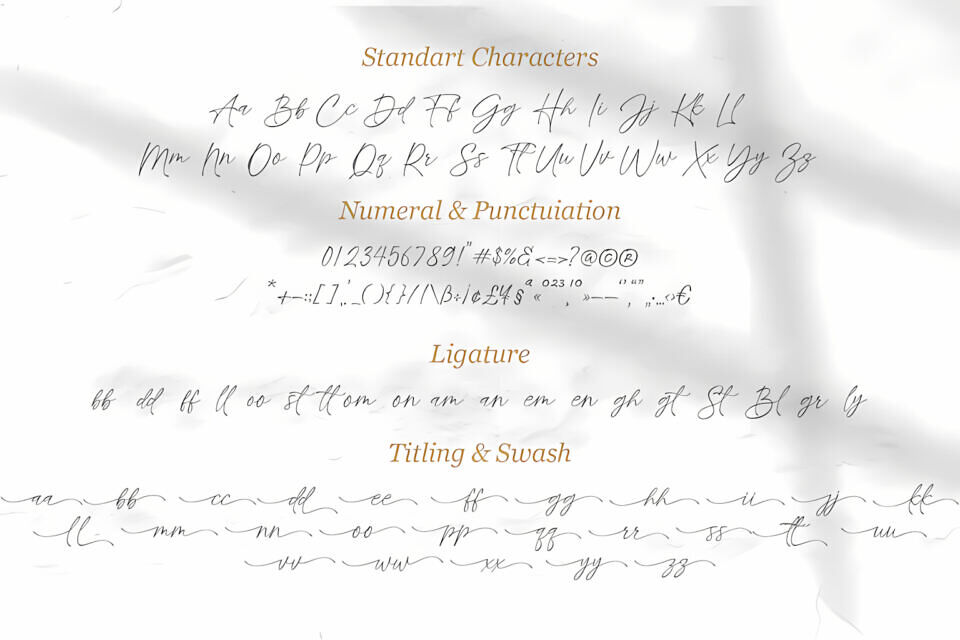 Standart Characters
Aa Bb Cc Dd Ff Gg Hh Ii Jj Kk Ll
Mm Nn Oo Pp Qq Rr Ss Tt Uu Vv Ww Xx Yy Zz
Numeral & Punctuiation
0123456789!"#$%&<=>?@©®
*+-:;[],.'_(){}/|\ß÷¡¢£¥§ª«º²³¹º¸»–—‘’‚“”„·…‹›€
Ligature
bb dd ff ll oo st tt om on am an em en gh gt St Bl gr ly
Titling & Swash
aa bb cc dd ee ff gg hh ii jj kk
ll mm nn oo pp qq rr ss tt uu
vv ww xx yy zz